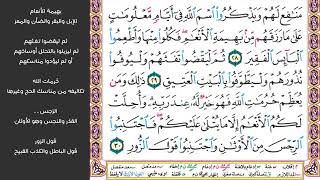 مَنَٰفِعَ لَهُمْ وَيَذْكُرُوا۟ ٱسْمَ ٱللَّهِ فِىٓ أَيَّامٍ مَّعْلُومَٰتٍ
عَلَىٰ مَا رَزَقَهُم مِّنۢ بَهِيمَةِ ٱلْأَنْعَٰمِ فَكُلُوا۟ مِنْهَا وَأَطْعِمُوا۟
ٱلْبَآئِسَ ٱلْفَقِيرَ ٢٨ ثُمَّ لْيَقْضُوا۟ تَفَثَهُمْ وَلْيُوفُوا۟
نُذُورَهُمْ وَلْيَطَّوَّفُوا۟ بِٱلْبَيْتِ ٱلْعَتِيقِ ٢٩ ذَٰلِكَ وَمَن
يُعَظِّمْ حُرُمَٰتِ ٱللَّهِ فَهُوَ خَيْرٌ لَّهُۥ عِندَ رَبِّهِۦ وَأُحِلَّتْ
لَكُمُ ٱلْأَنْعَٰمُ إِلَّا مَا يُتْلَىٰ عَلَيْكُمْ فَٱجْتَنِبُوا۟
ٱلرِّجْسَ مِنَ ٱلْأَوْثَٰنِ وَٱجْتَنِبُوا۟ قَوْلَ ٱلزُّورِ ٣٠
بهيمة الأنعام
الإبل والبقر والضأن والمعز
ثم ليقضوا تفثهم
ثم ليزيلوا بالتحلل أوساخهم
أو ثم ليؤدوا مناسكهم
حُرمات الله
تكاليفه من مناسك الحج وغيرها
الرجس ...
القذر والنجس وهو الأوثان
قول الزور
قول الباطل والكذب القبيح